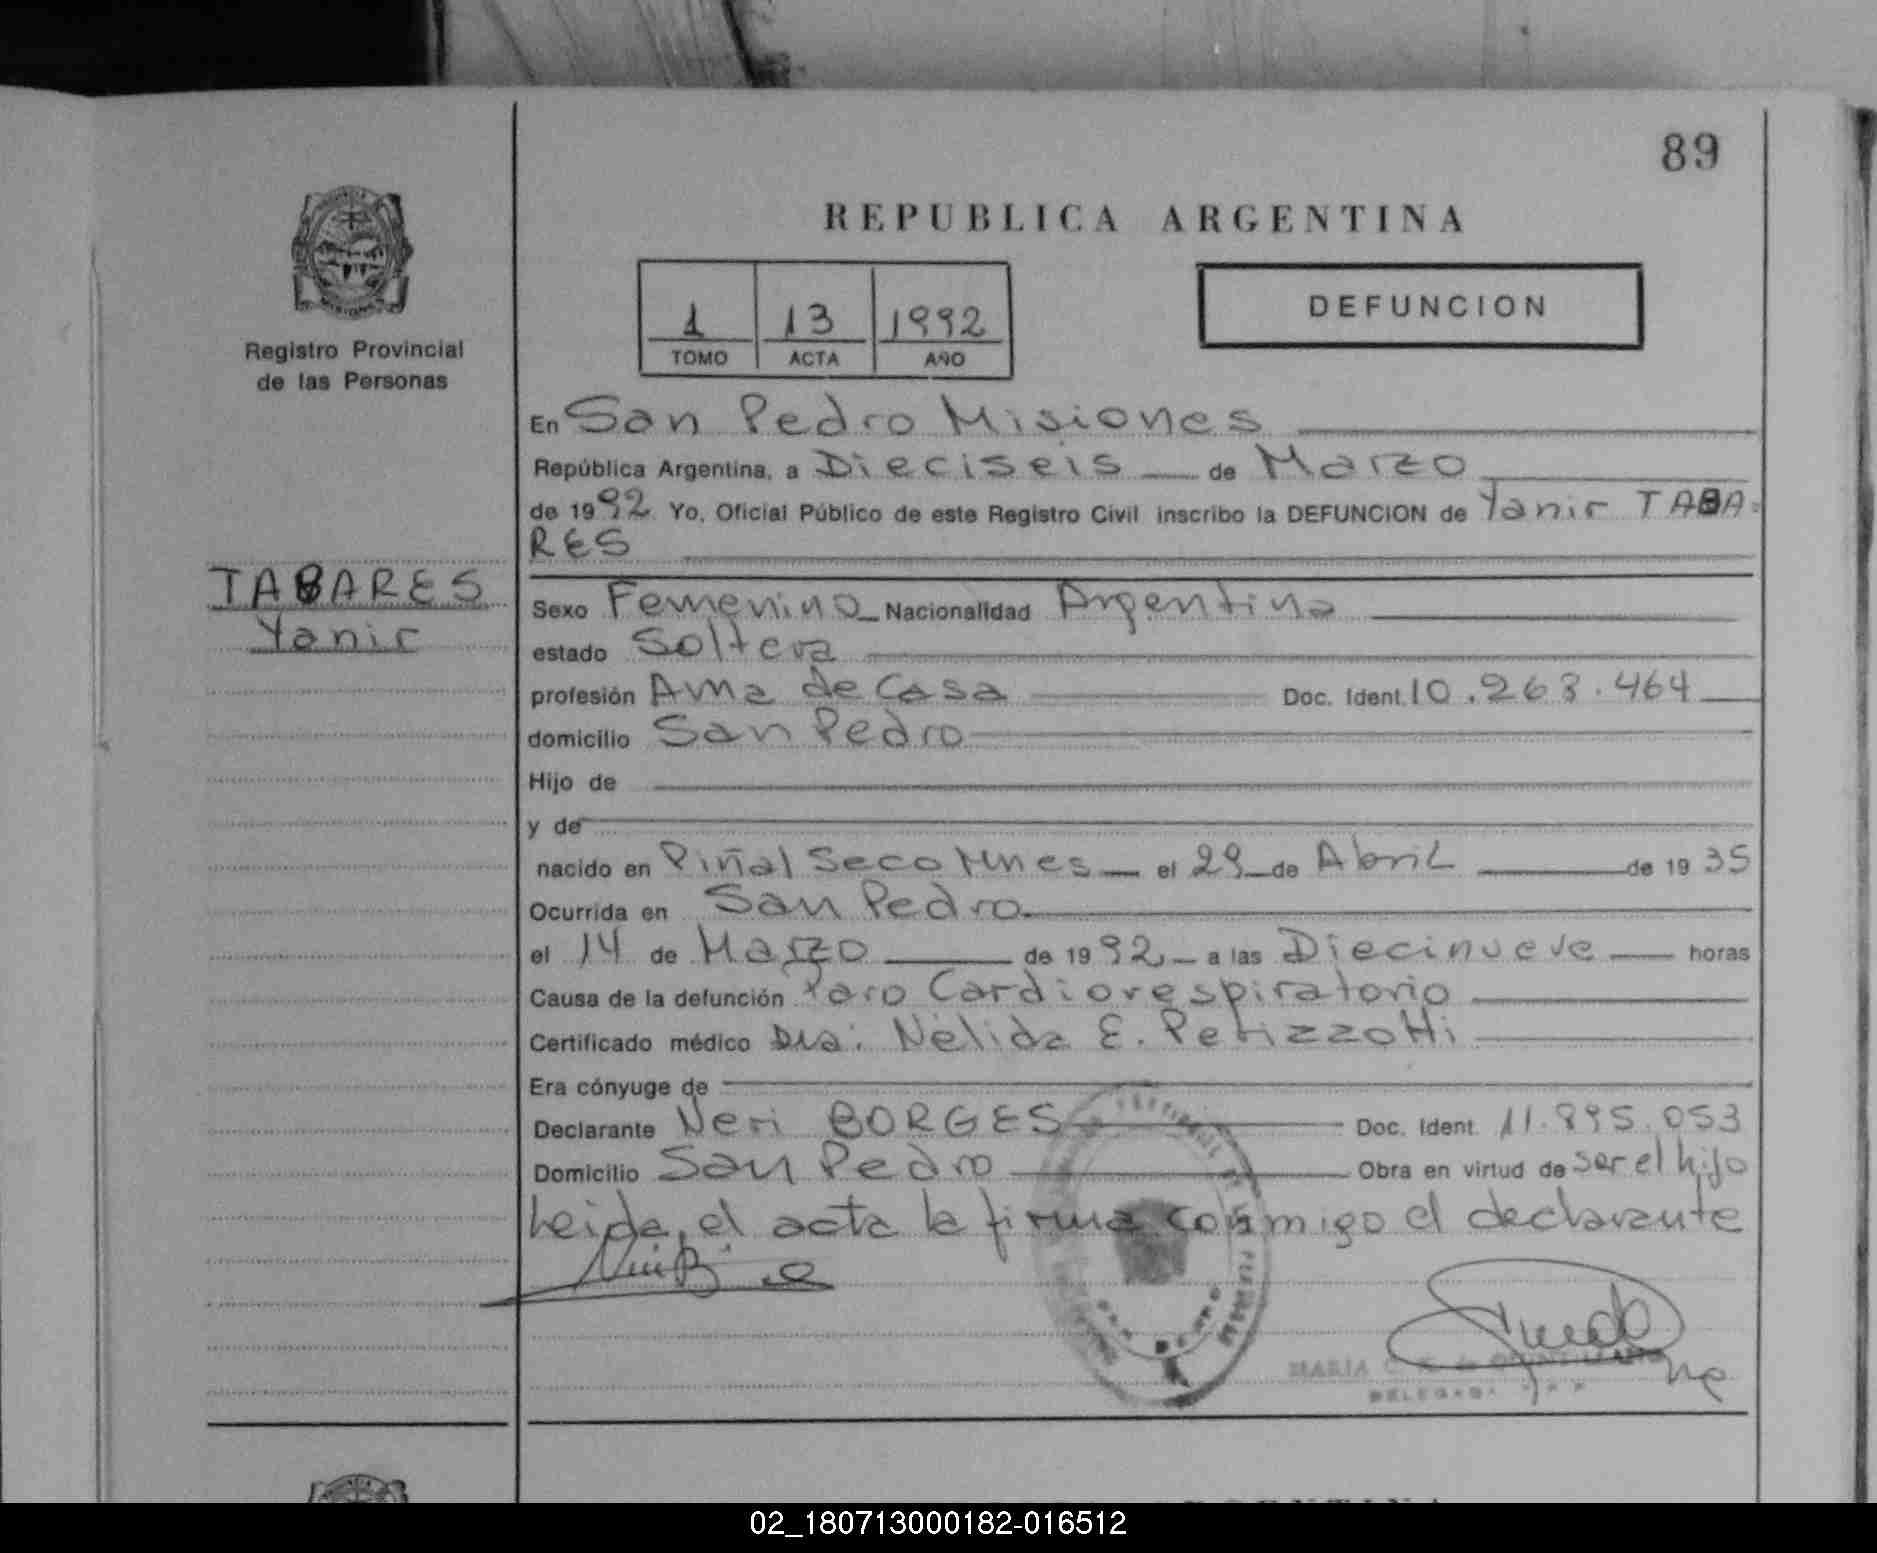 89
REPUBLICA ARGENTINA
1 13 1992
TOMO ACTA AÑO
DEFUNCION
Registro Provincial
de las Personas
En San Pedro Misiones
República Argentina, a Dieciseis de Marzo
de 1992 Yo, Oficial Público de este Registro Civil inscribo la DEFUNCION de Yanir TABA-
RES
TABARES
Yanir
Sexo Femenino Nacionalidad Argentina
estado Soltera
profesión Ama de Casa Doc. Ident. 10.263.464
domicilio San Pedro
Hijo de
y de
nacido en Piñal Seco Mnes el 29 de Abril de 1935
Ocurrida en San Pedro
el 14 de Marzo de 1992 a las Diecinueve horas
Causa de la defunción Paro Cardiorespiratorio
Certificado médico Dra. Nélida E. Petizzotti
Era cónyuge de
Declarante Neri BORGES Doc. Ident. 11.895.053
Domicilio San Pedro Obra en virtud de ser el hijo
Leida, el acta la firma conmigo el declarante
MARIA
DELEGADA
02_180713000182-016512